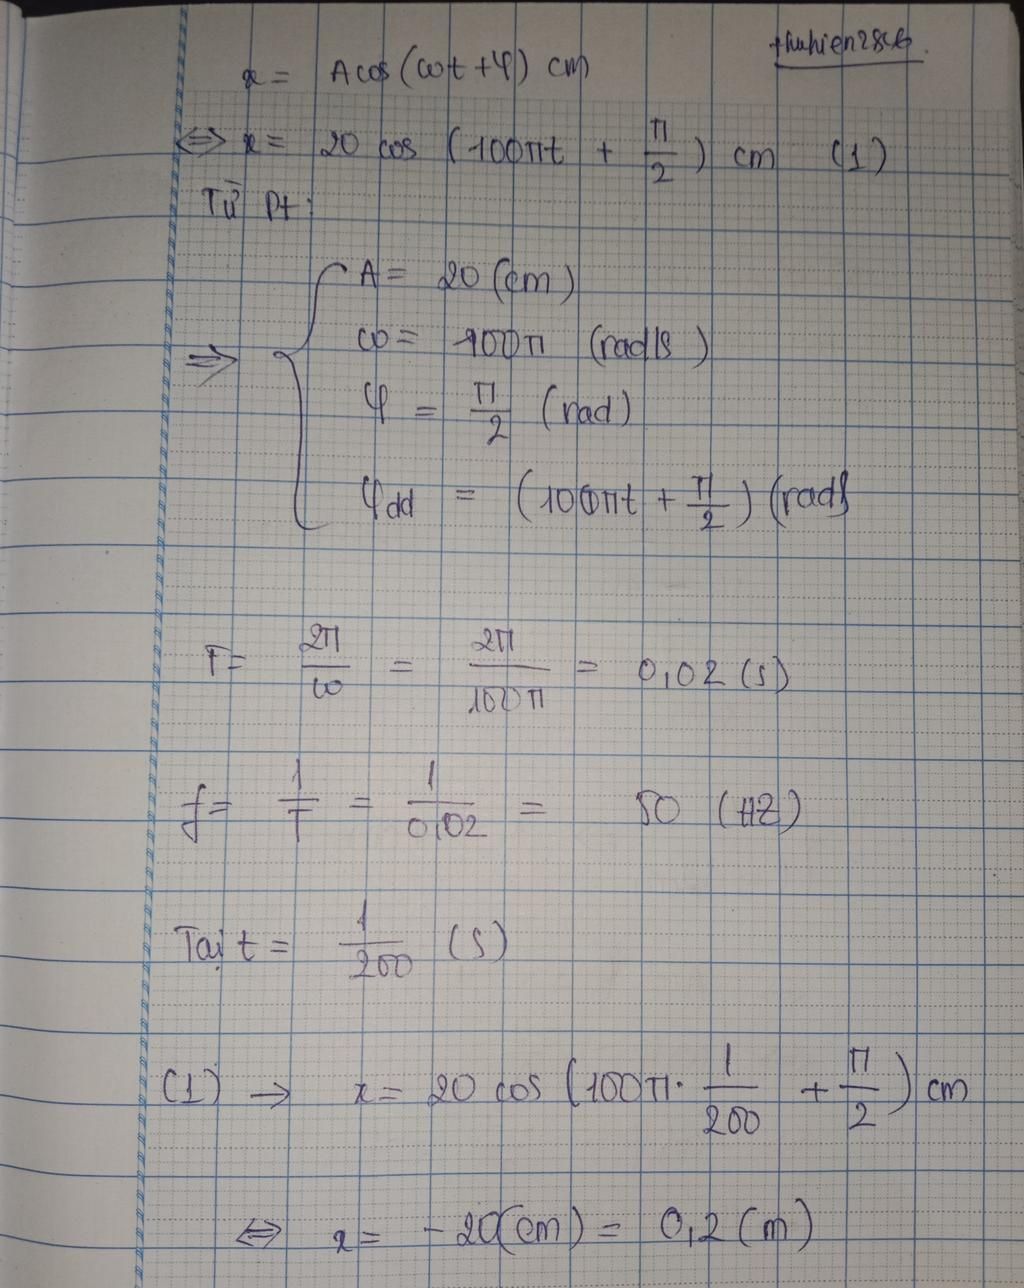 thuhien28cb.
x = Acos(ωt + φ) cm
⇔ x = 20 cos (100πt + π/2) cm (1)
Từ pt:
⇒ { A = 20 (cm)
ω = 100π (rad/s)
φ = π/2 (rad)
φdd = (100πt + π/2) (rad)
T = 2π/ω = 2π/100π = 0,02 (s)
f = 1/T = 1/0,02 = 50 (HZ)
Tại t = 1/200 (s)
(1) → x = 20 cos (100π. 1/200 + π/2) cm
⇔ x = - 20(cm) = 0,2 (m)